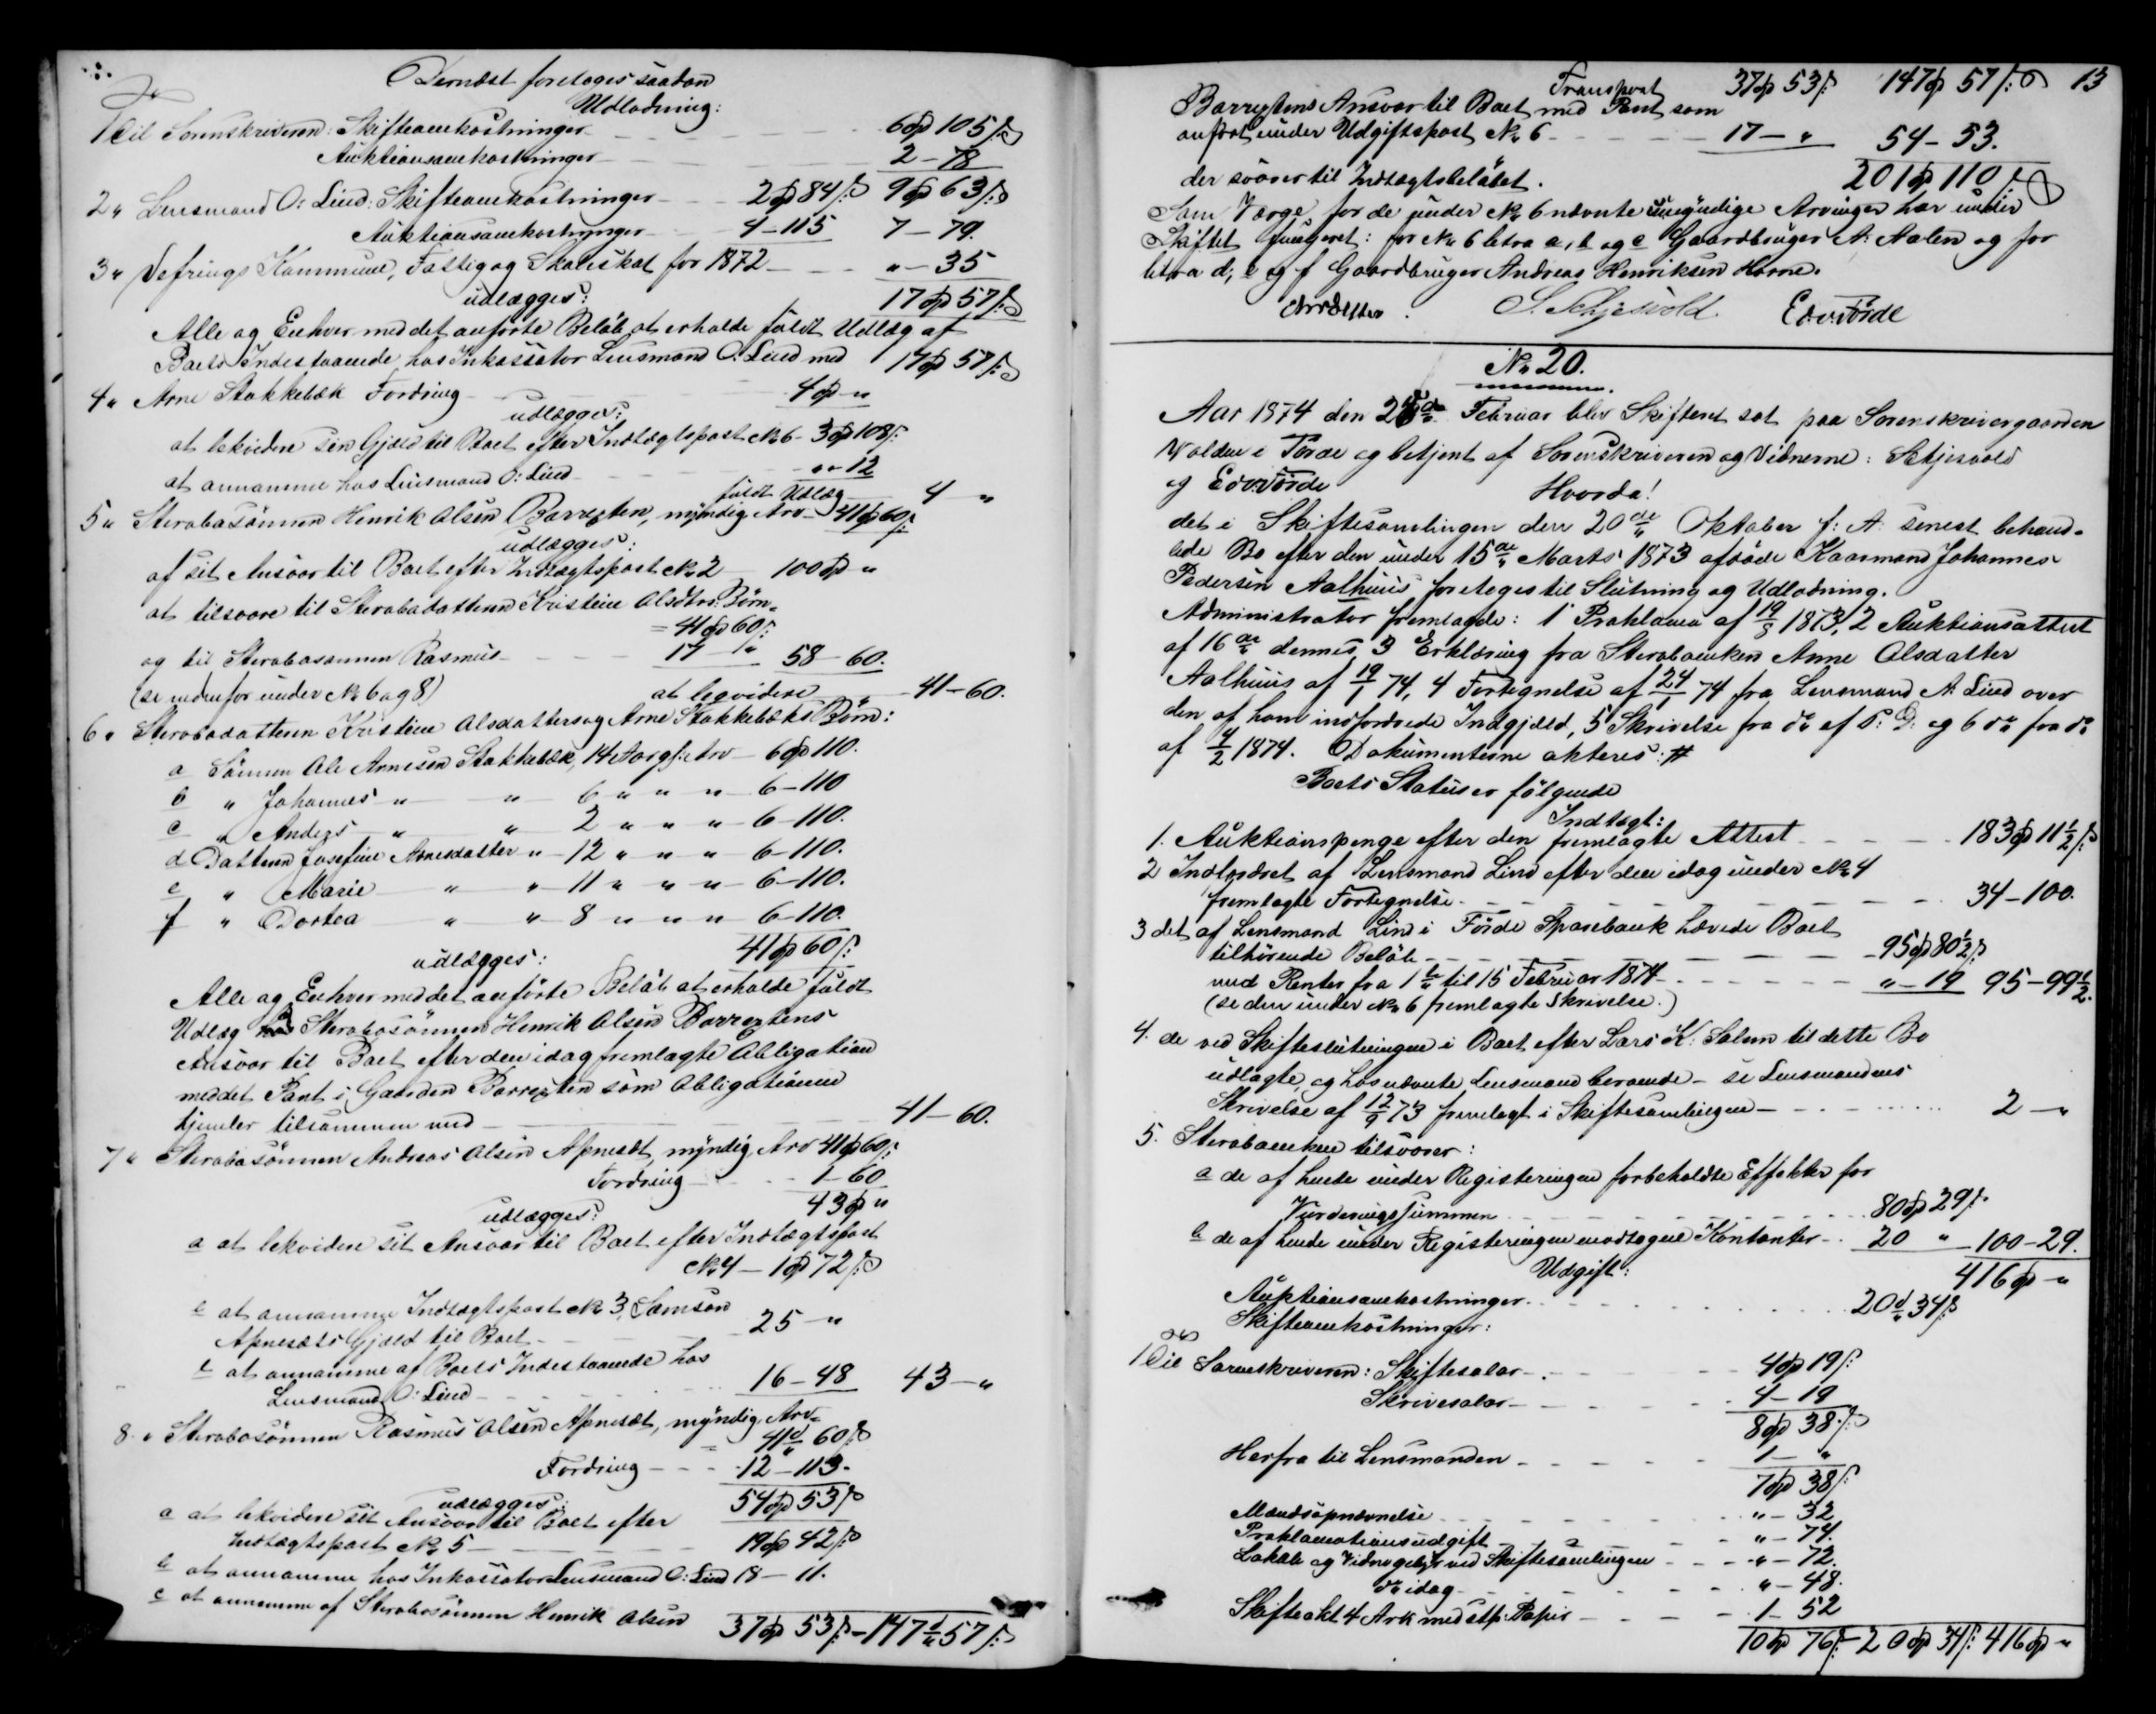 Dernæst foretoges saadan
Udlodning:
1 Til Sorenskriveren: Skifteomkostninger 6 105
Auktionsomkostninger 2 - 78
2 " Lensmand O: Lind: Skifteomkostninger 2 84 9 63
Auktionsomkostninger 4 - 115 7 - 79.
3 " Kommune, Fattig og Skoleskat for 1872 " - 35
udlægges: 17 57
Alle og Enhver med det anførte Beløb at erholde fuldt Udlæg af
Boets Indestaaende hos Inkassator Lensmand O: Lind med 17 57
4 " Arne Stokkebæk Fordring 4 "
udlægges:
at likvidere sin Gjæld til Boet efter Indtægtspost No 6 3 108
at annamme hos Lensmand O: Lind " - 12
fuldt Udlæg 4 "
5 " Sterbosønnen Henrik Olsen, myndig Arv 41 60
udlægges:
af sit Ansvar til Boet efter Indtægtspost No 2 100 "
at tilsvare til Sterbodatteren Kristine Olsdtrs: Børn
= 41 60
og til Sterbosønnen Rasmus 17 " 58 - 60.
(se nedenfor under No 6 og 8) at liqvidere 41 - 60.
6 " Sterbodatteren Kristine Olsdatters og Arne Stokkebæks Børn:
a Sønnen Ole Arnesen Stokkebæk, 14 Aar gl: Arv 6 110.
b " Johannes " " 6 " " " 6 - 110
c " Anders " " 2 " " " 6 - 110.
d Datteren Josefine Arnesdatter " 12 " " " 6 - 110.
e " Marie " " 11 " " " 6 - 110.
f " Dortea " " 8 " " " 6 - 110.
udlægges: 41 60
Alle og Enhver med det anførte Beløb at erholde fuldt
Udlæg hos Sterbosønnen Henrik Olsen
Ansvar til Boet efter den idag fremlagte Obligation
med det Pant i Gaarden som Obligationen
hjemler tilsammen med 41 - 60.
7 " Sterbosønnen Andreas Olsen, myndig, Arv 41 60
Fordring 1 - 60
udlægges: 43 "
a at likvidere sit Ansvar til Boet efter Indtægtspost
No 4 1 72
b at annamme Indtægtspost No 3, Samson
Gjæld til Boet 25 - "
c at annamme af Boets Indestaaende hos
Lensmand O: Lind 16 - 48 43 - "
8 " Sterbosønnen Rasmus Olsen, myndig, Arv
= 41 60
Fordring 12 - 113.
udlægges: 54 53
a at likvidere sit Ansvar til Boet efter
Indtægtspost No 5 19 42
b at annamme hos Inkassator Lensmand O: Lind 18 - 11.
c at annamme af Sterbosønnen Henrik Olsen
37 53 - 147 57
Transport 37 53 147 57 13
Ansvar til Boet med Pant som
anført under Udgiftspost No 6 17 - " 54 - 53.
der svarer til Indtægtsbeløbet. 201 110
Som Værge for de under No 6 nævnte umyndige Arvinger har under
Skiftet fungeret: for No 6 litra a, b og c Gaardbruger A: Aalen og for
litra d, e og f Gaardbruger Andreas Henriksen Horne.
No 20.
Aar 1874 den Februar blev Skifteret sat paa Sorenskrivergaarden
i Førde og betjent af Sorenskriveren og Vidnerne:
og Hvorda!
det i Skiftesamlingen den 20de Oktober f: A: senest behand-
lede Bo efter den under 15de Marts 1873 afdøde Kaarmand Johannes
Pedersen Aalhuus foretoges til Slutning og Udlodning.
Administrator fremlagde: 1 Proklama af 1873, 2 Auktionsattest
af 16de dennes, 3 Erklæring fra Sterboenken Anne Olsdatter
Aalhuus af 19/1 74, 4 Fortegnelse af 24/1 74 fra Lensmand A: Lind over
den af ham indfordrede Indgjæld, 5 Skrivelse fra do af S: D: og 6 do fra do
af 1874. Dokumenterne akteres: #
Boets Status er følgende
Indtægt:
1. Auktionspenge efter den fremlagte Attest 183 11 1/2
2 Indfordret af Lensmand Lind efter den idag under No 4
fremlagte Fortegnelse 34 - 100.
3 det af Lensmand Lind i Førde Sparebank hævede Boet
tilhørende Beløb 95 80 1/2
med Renter fra 1ste til 15 Februar 1874 " - 19 95 - 99 1/2.
(se den under No 6 fremlagte Skrivelse.)
4. de ved Skifteslutningen i Boet efter Lars K: til dette Bo
udlagte, og hos nævnte Lensmand beroende - se Lensmandens
Skrivelse af 12/9 73 fremlagt i Skiftesamlingen 2 - "
5. Sterboenken tilsvarer:
a de af hende under Registeringen forbeholdte Effekter for
Vurderingssummen 80 29
b de af hende under Registeringen modtagne Kontanter 20 " 100 - 29.
Udgift: 416 - "
Auktionsomkostninger 20 34
Skifteomkostninger:
1 Til Sorenskriveren: Skiftesalær 4 19
Skrivesalær 4 - 19
8 38
Herfra til Lensmanden 1 - "
7 38
Mandsopnævnelse " - 32
Proklamationsudgift " - 74.
Lokale og Vidnegebyr ved Skiftesamlingen " - 72.
do idag " - 48.
Skifteakt 4 Ark med stp: Papir 1 - 52
10 76 - 20 34 416 "